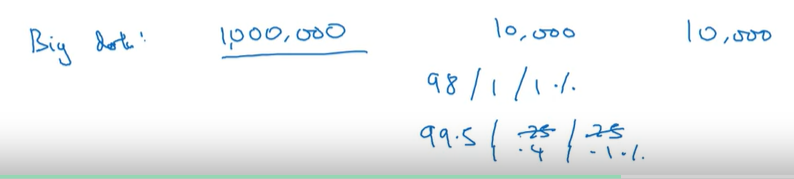 Big data: 1,000,000 10,000 10,000
98 / 1 / 1 %
99.5 / .25 .4 / .25 .1 %